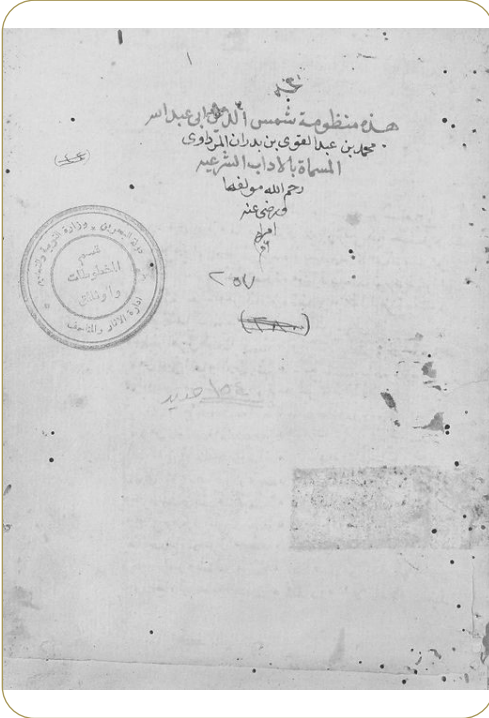 هذه منظومة شمس الدين ابي عبد الله
محمد بن عبد القوي بن بدران المرداوي
المسماة بالاداب الشرعيه
رحم الله مولفها
ورضي عنه
امين
٢٥٧
جديد
دولة البحرين ٭ وزارة التربية والتعليم
قسم
المخطوطات
والوثائق
ادارة الاثار والمتاحف